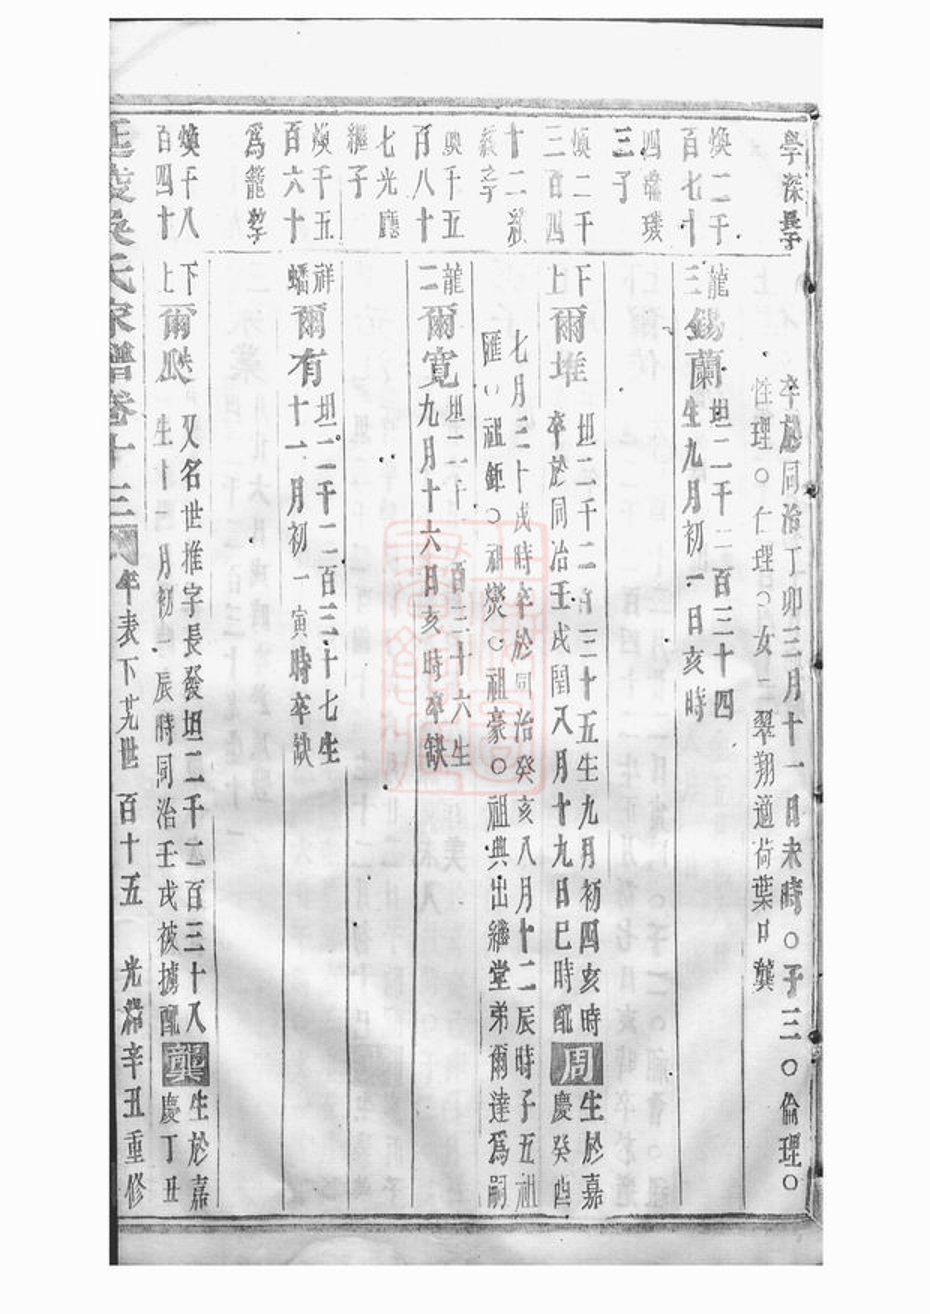 學深長子
卒於同治丁卯三月十一日未時○子三○倫理○
性理○仁理○女二翠翔適荷葉口龔
煥二千
百七十
四常璣
三子
龍三錫蘭
坦二千二百三十四
生九月初一日亥時
煥二千
三百四
十二
義子
下上爾堆
坦二千二百三十五生九月初四亥時
卒於同治壬戌閏八月十九日巳時配周生於嘉
慶癸酉
七月三十戌時卒於同治癸亥八月十二辰時子五祖
匯○祖鉅○祖爕○祖豪○祖典出繼堂弟爾達爲嗣
煥千五
百八十
七光廳
繼子
龍二爾寬
坦二千二百三十六生
九月十六日亥時卒缺
煥千五
百六十
爲籠孝
祥蟠爾有
坦二千二百三十七生
十一月初一寅時卒缺
煥千八
百四十
下上爾
又名世推字長發坦二千二百三十八
生十一月初 辰時同治壬戌被擄配龔生於嘉
慶丁丑
延陵吳氏家譜卷十三 年表下 世 百十五 光緒辛丑重修